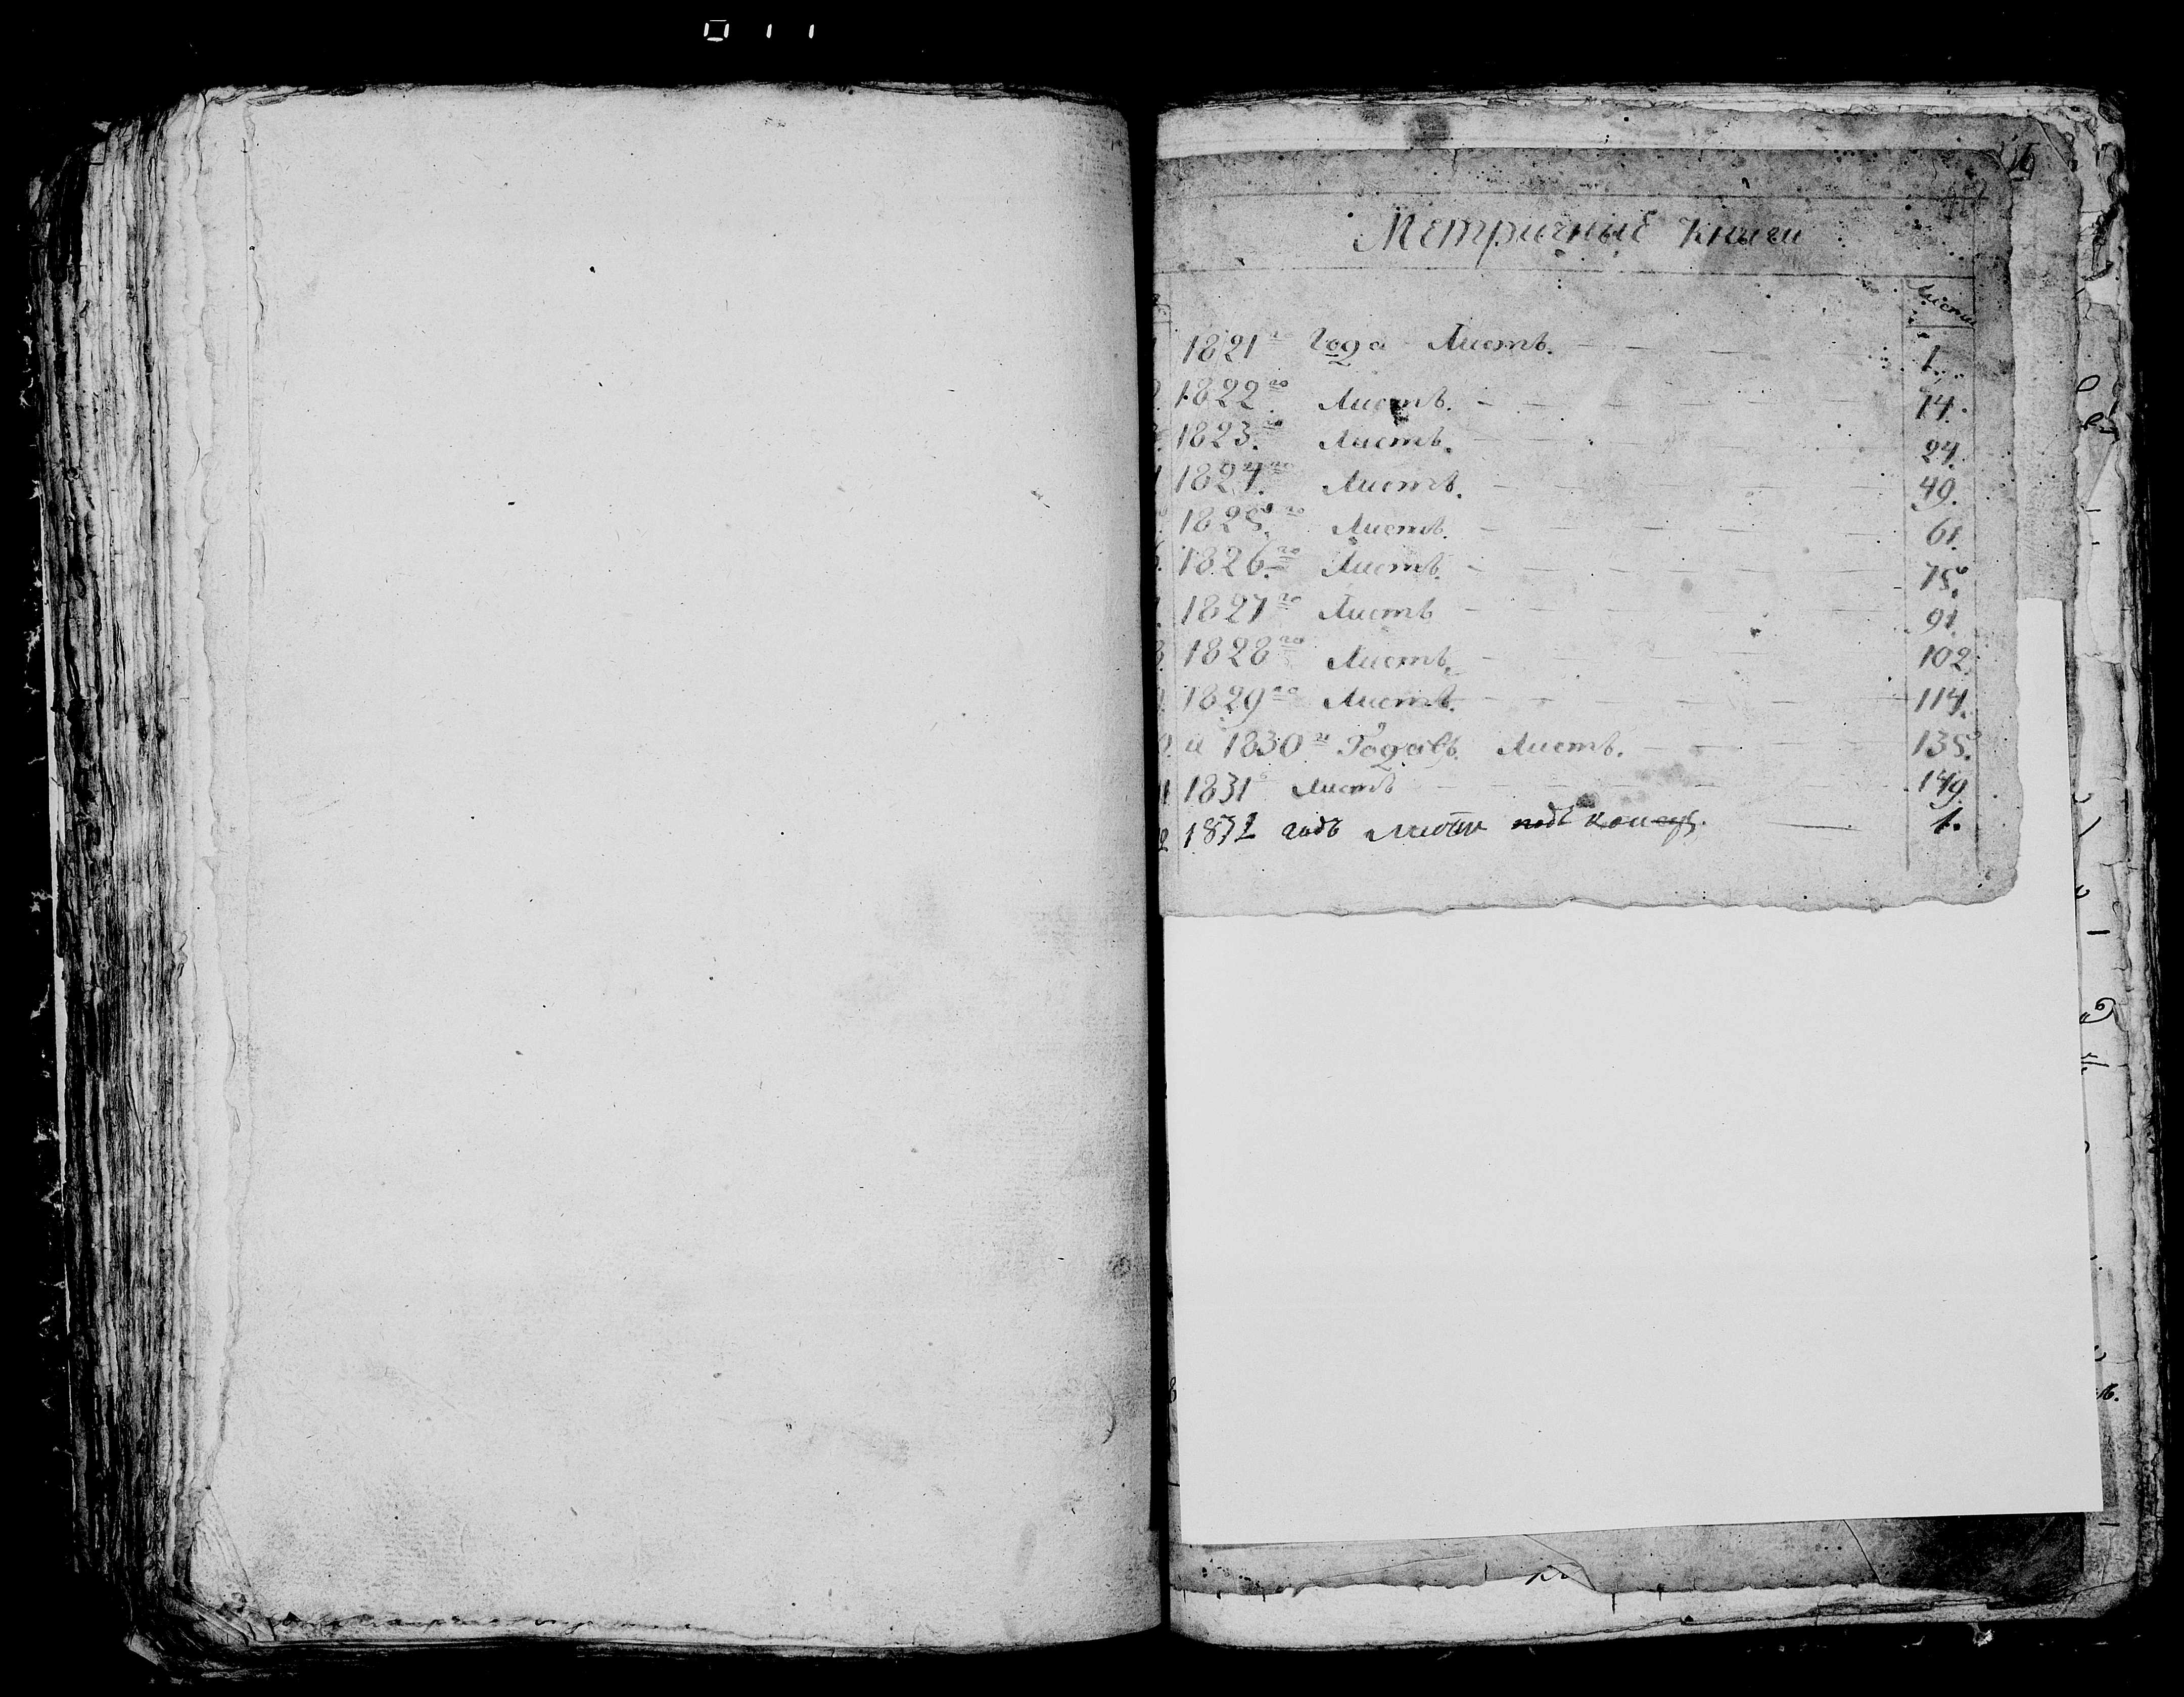 011
Метричные книги
Листы
1821го Года Листъ. 1.
2. 1822го Листъ. 14.
1823.го Листъ. 24.
1824.го Листъ. 49.
1825.го Листъ. 61.
6. 1826.го Листъ. 75.
1827го Листъ 91.
8. 1828го Листъ. 102.
1829го Листъ. 114.
и 1830го Годовъ. Листъ. 135.
11 1831 Листъ 149.
12 1832 годъ Листы подъ конецъ. 1.